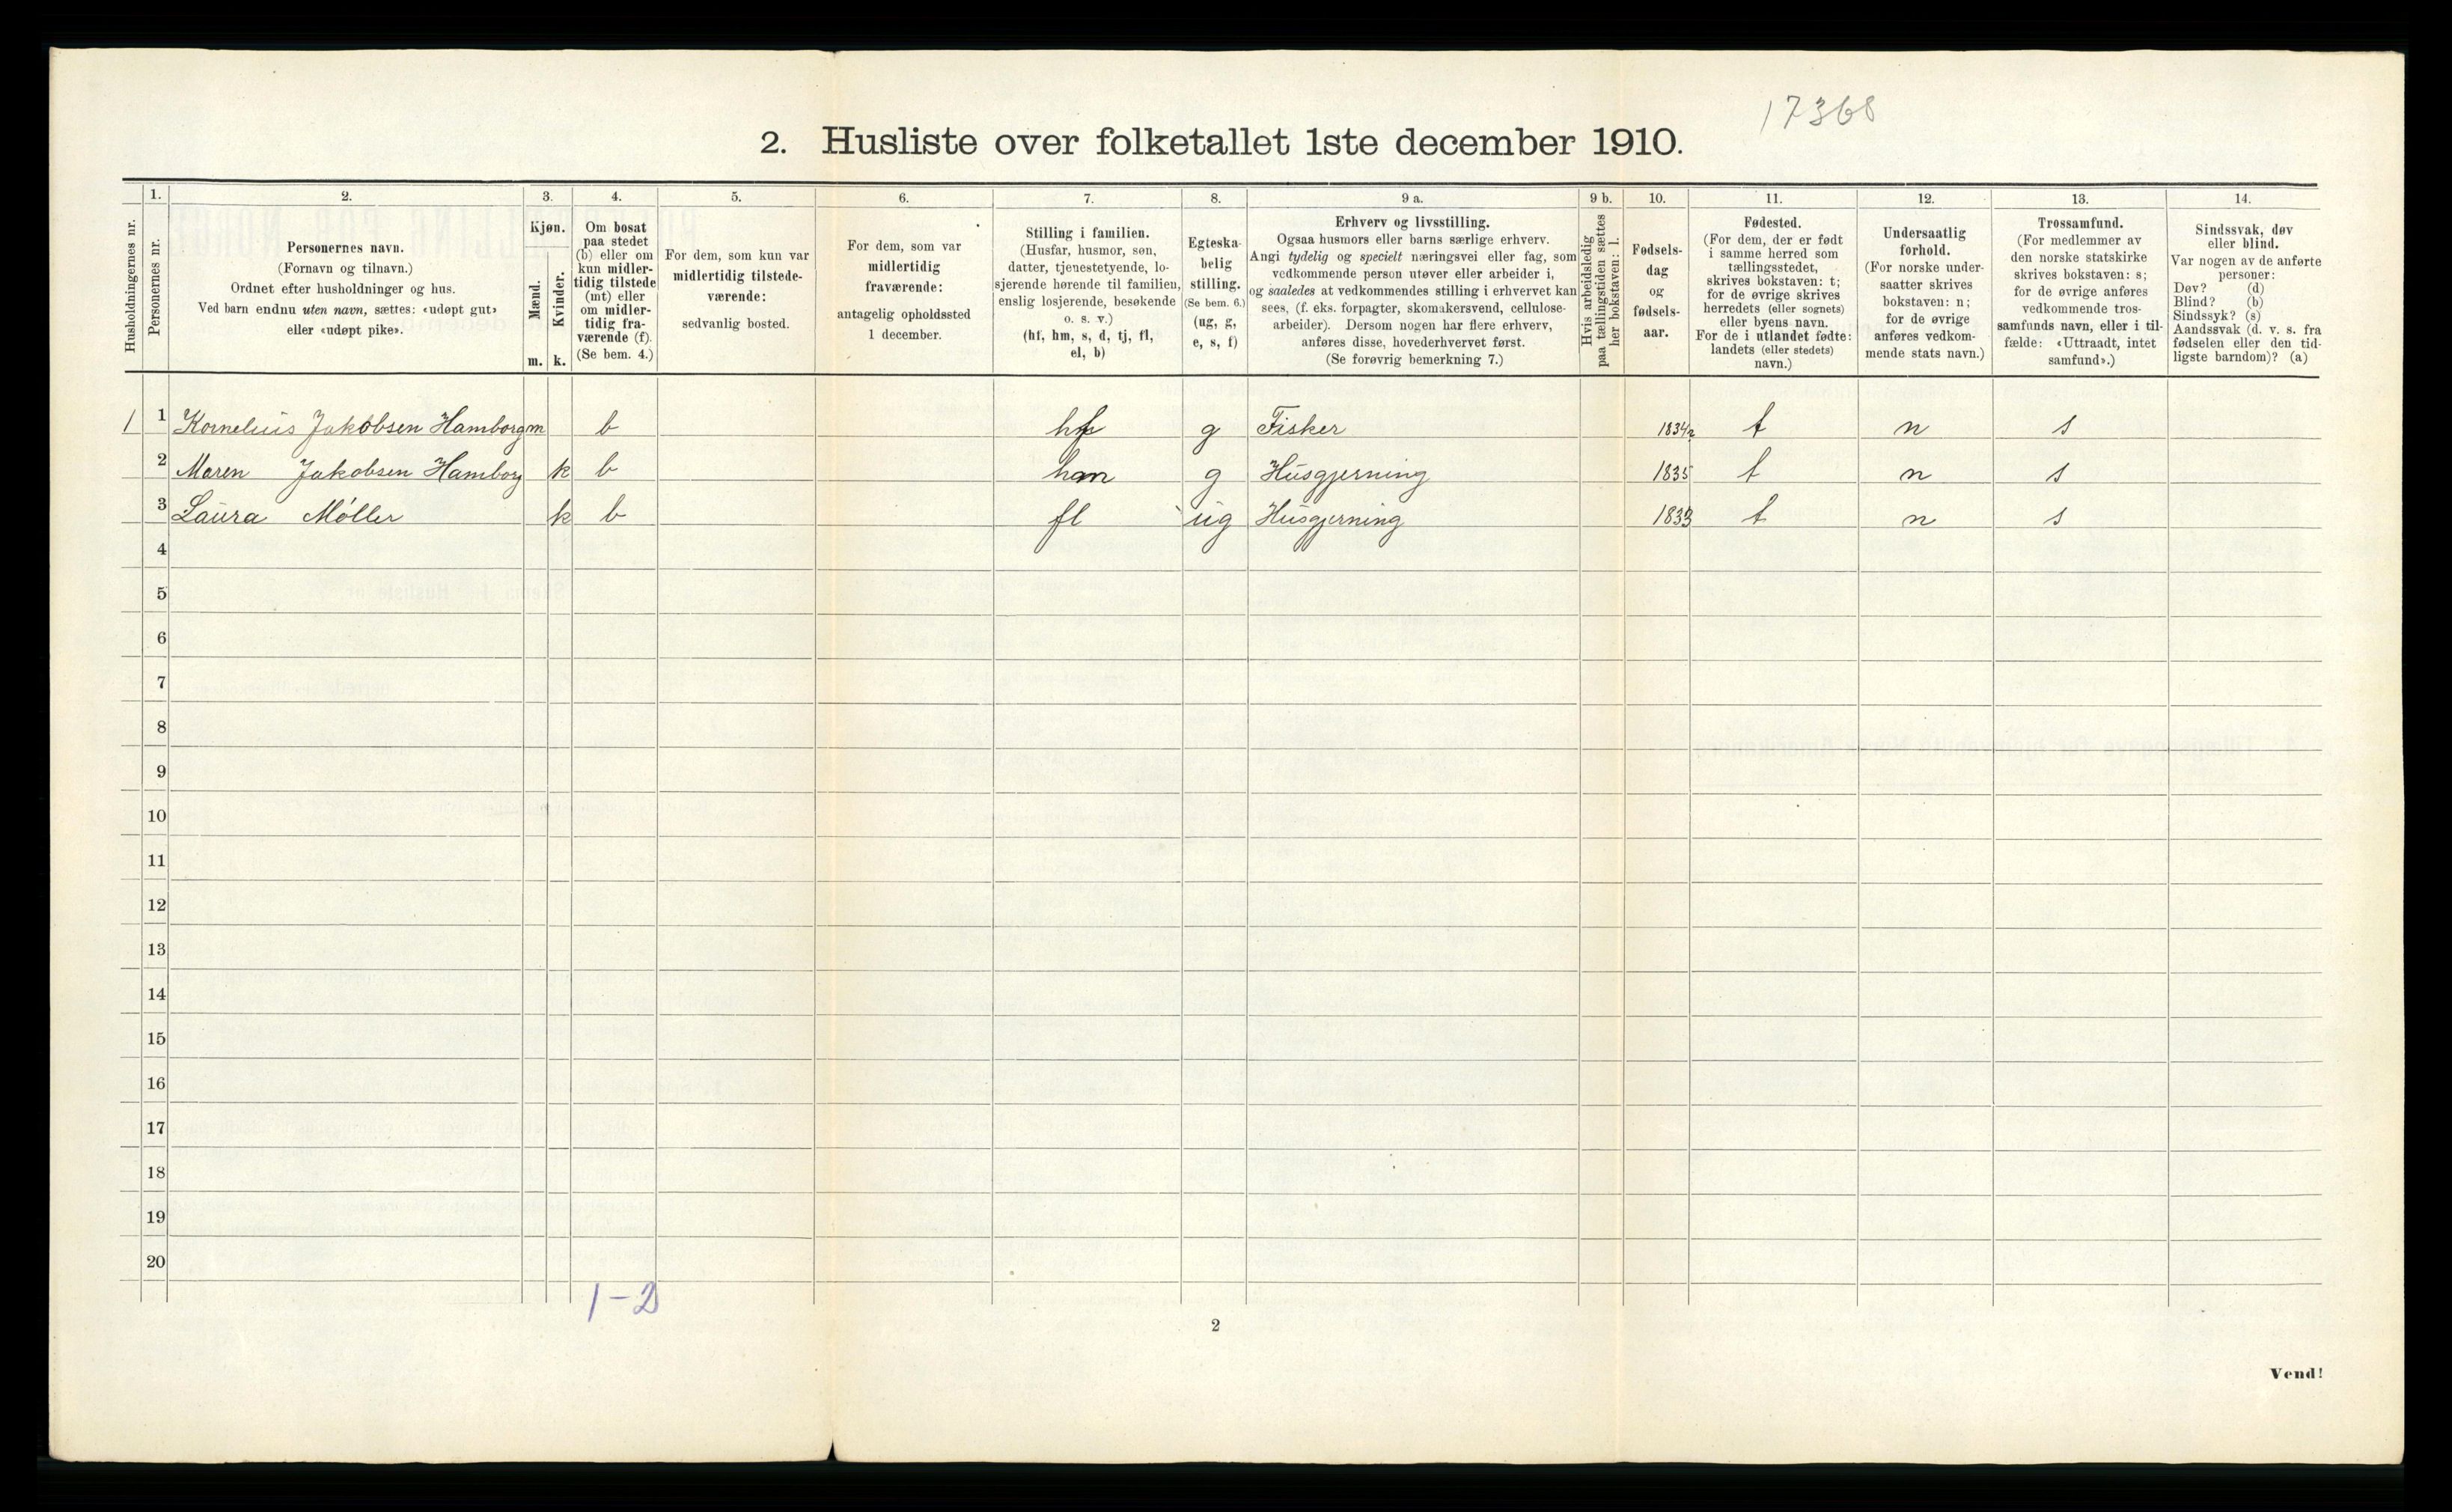 17368
2. Husliste over folketallet 1ste december 1910.
Husholdningernes nr.
1.
Personernes nr.
2.
Personernes navn.
(Fornavn og tilnavn.)
Ordnet efter husholdninger og hus.
Ved barn endnu uten navn, sættes: «udøpt gut»
eller «udøpt pike».
3.
Kjøn.
Mænd.
m.
Kvinder.
k.
4.
Om bosat
paa stedet
(b) eller om
kun midler-
tidig tilstede
(mt) eller
om midler-
tidig fra-
værende (f).
(Se bem. 4.)
5.
For dem, som kun var
midlertidig tilstede-
værende:
sedvanlig bosted.
6.
For dem, som var
midlertidig
fraværende:
antagelig opholdssted
1 december.
7.
Stilling i familien.
(Husfar, husmor, søn,
datter, tjenestetyende, lo-
sjerende hørende til familien,
enslig losjerende, besøkende
o. s. v.)
(hf, hm, s, d, tj, fl,
el, b)
8.
Egteska-
belig
stilling.
(Se bem. 6.)
(ug, g,
e, s, f)
9 a.
Erhverv og livsstilling.
Ogsaa husmors eller barns særlige erhverv.
Angi tydelig og specielt næringsvei eller fag, som
vedkommende person utøver eller arbeider i,
og saaledes at vedkommendes stilling i erhvervet kan
sees, (f. eks. forpagter, skomakersvend, cellulose-
arbeider). Dersom nogen har flere erhverv,
anføres disse, hovederhvervet først.
(Se forøvrig bemerkning 7.)
9 b.
Hvis arbeidsledig
paa tællingstiden sættes
her bokstaven: l.
10.
Fødsels-
dag
og
fødsels-
aar.
11.
Fødested.
(For dem, der er født
i samme herred som
tællingsstedet,
skrives bokstaven: t;
for de øvrige skrives
herredets (eller sognets)
eller byens navn.
For de i utlandet fødte:
landets (eller stedets)
navn.)
12.
Undersaatlig
forhold.
(For norske under-
saatter skrives
bokstaven: n;
for de øvrige
anføres vedkom-
mende stats navn.)
13.
Trossamfund.
(For medlemmer av
den norske statskirke
skrives bokstaven: s;
for de øvrige anføres
vedkommende tros-
samfunds navn, eller i til-
fælde: «Uttraadt, intet
samfund».)
14.
Sindssvak, døv
eller blind.
Var nogen av de anførte
personer:
Døv? (d)
Blind? (b)
Sindssyk? (s)
Aandssvak (d. v. s. fra
fødselen eller den tid-
ligste barndom)? (a)
1 1 Kornelius Jakobsen Hamborg m b hf g Fisker 1834 t n s
2 Maren Jakobsen Hamborg k b hm g Husgjerning 1835 t n s
3 Laura Møller k b fl ug Husgjerning 1833 t n s
4
5
6
7
8
9
10
11
12
13
14
15
16
17
18
19
20
1-2
2
Vend!